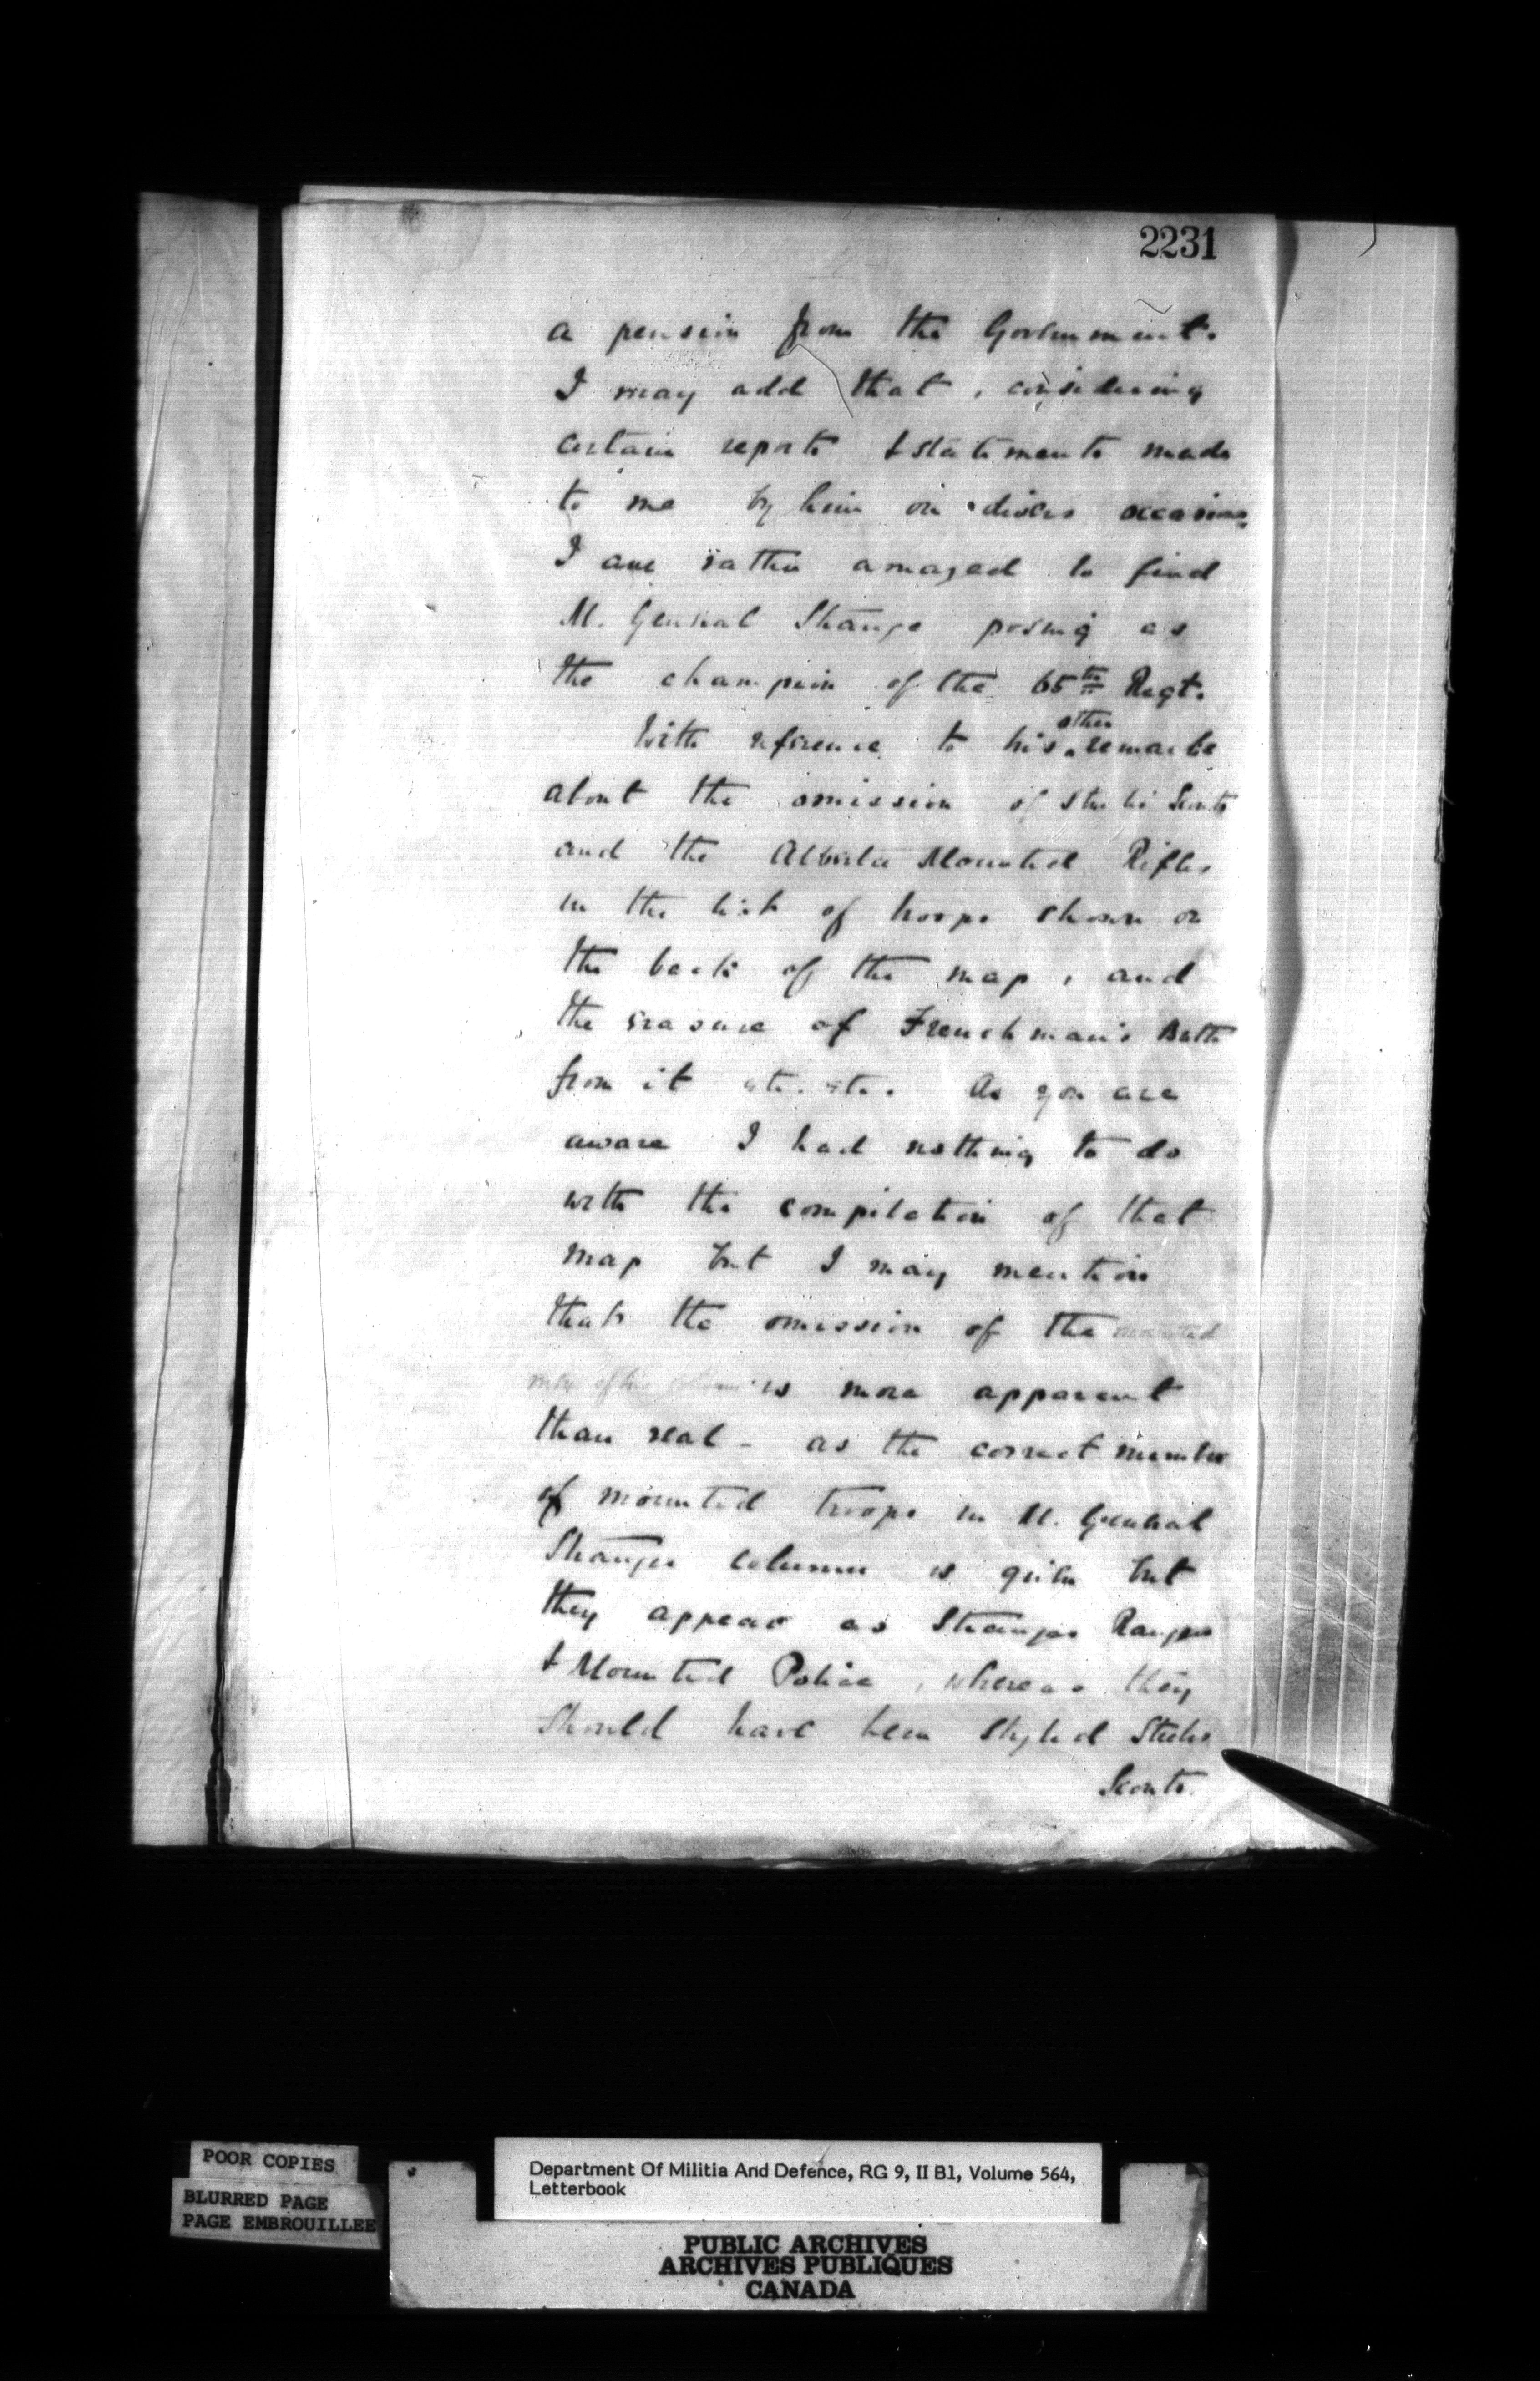 2231
a pension from the Government.
I may add that, considering
certain reports & statements made
to me by him on divers occasions
I am rather amazed to find
M. General Strange posing as
the champion of the 65th Regt.
With reference to his other remarks
about the omission of Steeles Scouts
and the Alberta Mounted Rifles
in the list of troops shown on
the back of the map, and
the erasure of Frenchman's Butte
from it etc. etc. As you are
aware I had nothing to do
with the compilation of that
map but I may mention
that the omission of the mounted
men of his column is more apparent
than real - as the correct number
of mounted troops in M. General
Stranges column is given but
they appear as Stranges Rangers
& Mounted Police, whereas they
should have been styled Steeles
Scouts.
POOR COPIES
BLURRED PAGE
PAGE EMBROUILLEE
Department Of Militia And Defence, RG 9, II B1, Volume 564,
Letterbook
PUBLIC ARCHIVES
ARCHIVES PUBLIQUES
CANADA